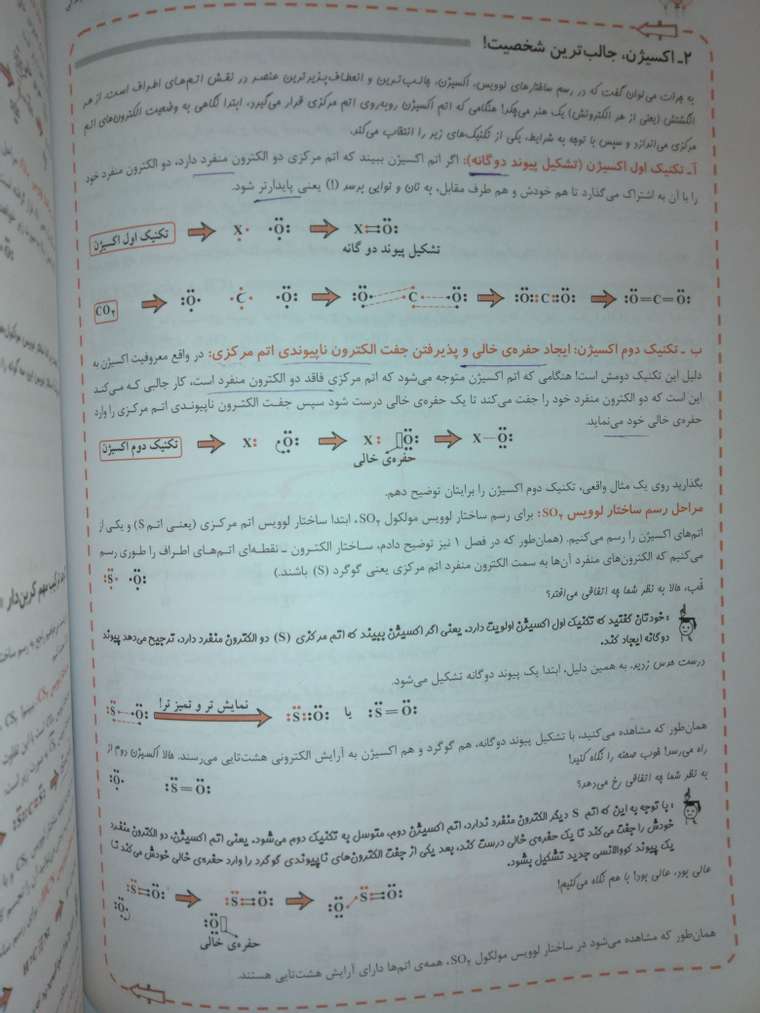 ۲ـ اکسیژن، جالب‌ترین شخصیت!
به جرات می‌توان گفت که در رسم ساختارهای لوویس، اکسیژن، جالب‌ترین و انعطاف‌پذیرترین عنصر در نقش اتم‌های اطراف است. از هر
انگشتش (یعنی از هر الکترونش) یک هنر می‌چکد! هنگامی که اتم اکسیژن روبه‌روی اتم مرکزی قرار می‌گیرد، ابتدا نگاهی به وضعیت الکترون‌های اتم
مرکزی می‌اندازد و سپس با توجه به شرایط، یکی از تکنیک‌های زیر را انتخاب می‌کند.
آـ تکنیک اول اکسیژن (تشکیل پیوند دوگانه): اگر اتم اکسیژن ببیند که اتم مرکزی دو الکترون منفرد دارد، دو الکترون منفرد خود
را با آن به اشتراک می‌گذارد تا هم خودش و هم طرف مقابل، به نان و نوایی برسد (!) یعنی پایدارتر شود.
تکنیک اول اکسیژن X O X O
تشکیل پیوند دو گانه
CO₂ O C O O C O O C O O=C=O
ب ـ تکنیک دوم اکسیژن: ایجاد حفره‌ی خالی و پذیرفتن جفت الکترون ناپیوندی اتم مرکزی: در واقع معروفیت اکسیژن به
دلیل این تکنیک دومش است! هنگامی که اتم اکسیژن متوجه می‌شود که اتم مرکزی فاقد دو الکترون منفرد است، کار جالبی که می‌کند
این است که دو الکترون منفرد خود را جفت می‌کند تا یک حفره‌ی خالی درست شود سپس جفت الکترون ناپیوندی اتم مرکزی را وارد
حفره‌ی خالی خود می‌نماید.
تکنیک دوم اکسیژن X: O X: O X—O
حفره‌ی خالی
بگذارید روی یک مثال واقعی، تکنیک دوم اکسیژن را برایتان توضیح دهم.
مراحل رسم ساختار لوویس SO₂: برای رسم ساختار لوویس مولکول SO₂، ابتدا ساختار لوویس اتم مرکزی (یعنی اتم S) و یکی از
اتم‌های اکسیژن را رسم می‌کنیم. (همان‌طور که در فصل ۱ نیز توضیح دادم، ساختار الکترون ـ نقطه‌ای اتم‌های اطراف را طوری رسم
می‌کنیم که الکترون‌های منفرد آن‌ها به سمت الکترون منفرد اتم مرکزی یعنی گوگرد (S) باشند.)
S O
خب، حالا به نظر شما چه اتفاقی می‌افتد؟
: خودتان گفتید که تکنیک اول اکسیژن اولویت دارد. یعنی اگر اکسیژن ببیند که اتم مرکزی (S) دو الکترون منفرد دارد، ترجیح می‌دهد پیوند
دوگانه ایجاد کند.
درست حدس زدید. به همین دلیل، ابتدا یک پیوند دوگانه تشکیل می‌شود.
S O نمایش تر و تمیز تر! S O یا S=O
همان‌طور که مشاهده می‌کنید، با تشکیل پیوند دوگانه، هم گوگرد و هم اکسیژن به آرایش الکترونی هشت‌تایی می‌رسند. حالا اکسیژن دوم از
راه می‌رسد! خوب صحنه را نگاه کنید!
O S=O
به نظر شما چه اتفاقی رخ می‌دهد؟
: با توجه به این که اتم S دیگر الکترون منفرد ندارد، اتم اکسیژن دوم، متوسل به تکنیک دوم می‌شود. یعنی اتم اکسیژن، دو الکترون منفرد
خودش را جفت می‌کند تا یک حفره‌ی خالی درست کند، بعد یکی از جفت الکترون‌های ناپیوندی گوگرد را وارد حفره‌ی خالی خودش می‌کند تا
یک پیوند کووالانسی جدید تشکیل بشود.
عالی بود، عالی بود! با هم نگاه می‌کنیم!
S O O S O O O S O
حفره‌ی خالی
همان‌طور که مشاهده می‌شود در ساختار لوویس مولکول SO₂، همه‌ی اتم‌ها دارای آرایش هشت‌تایی هستند.